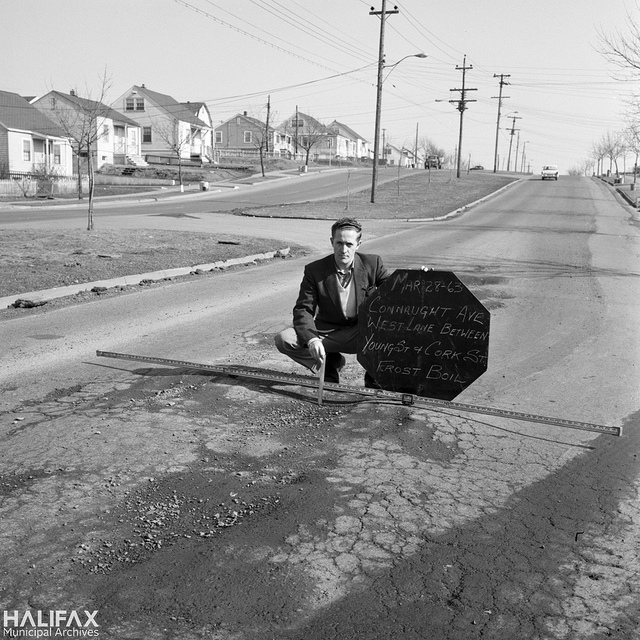 MAR 27-63
CONNAUGHT AVE
WEST LANE BETWEEN
YOUNG ST & CORK ST
FROST BOIL
HALIFAX
Municipal Archives